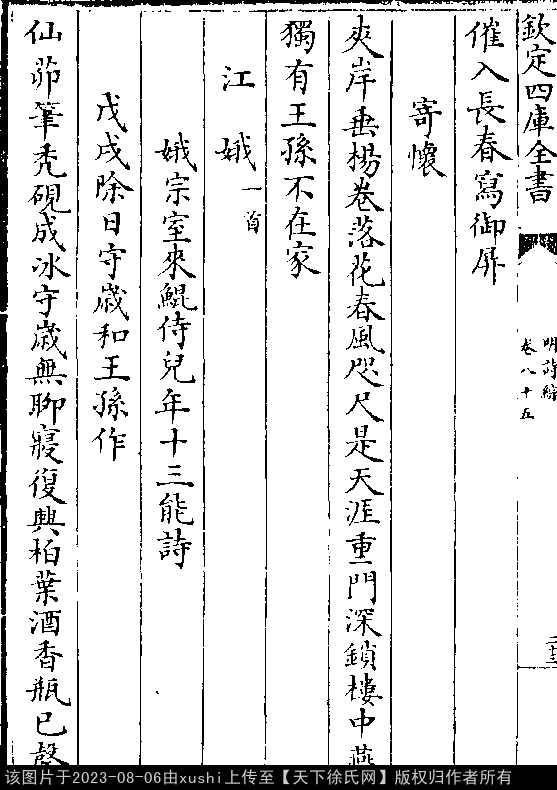 欽定四庫全書
明詩綜
卷八十五
二十三
催入長春寫御屏
寄懷
夾岸垂楊卷落花春風咫尺是天涯重門深鎖樓中燕
獨有王孫不在家
江娥一首
娥宗室來鯤侍兒年十三能詩
戊戌除日守歲和王孫作
仙茆筆禿硯成冰守歲無聊寢復興柏葉酒香瓶已罄
该图片于2023-08-06由xushi上传至【天下徐氏网】版权归作者所有